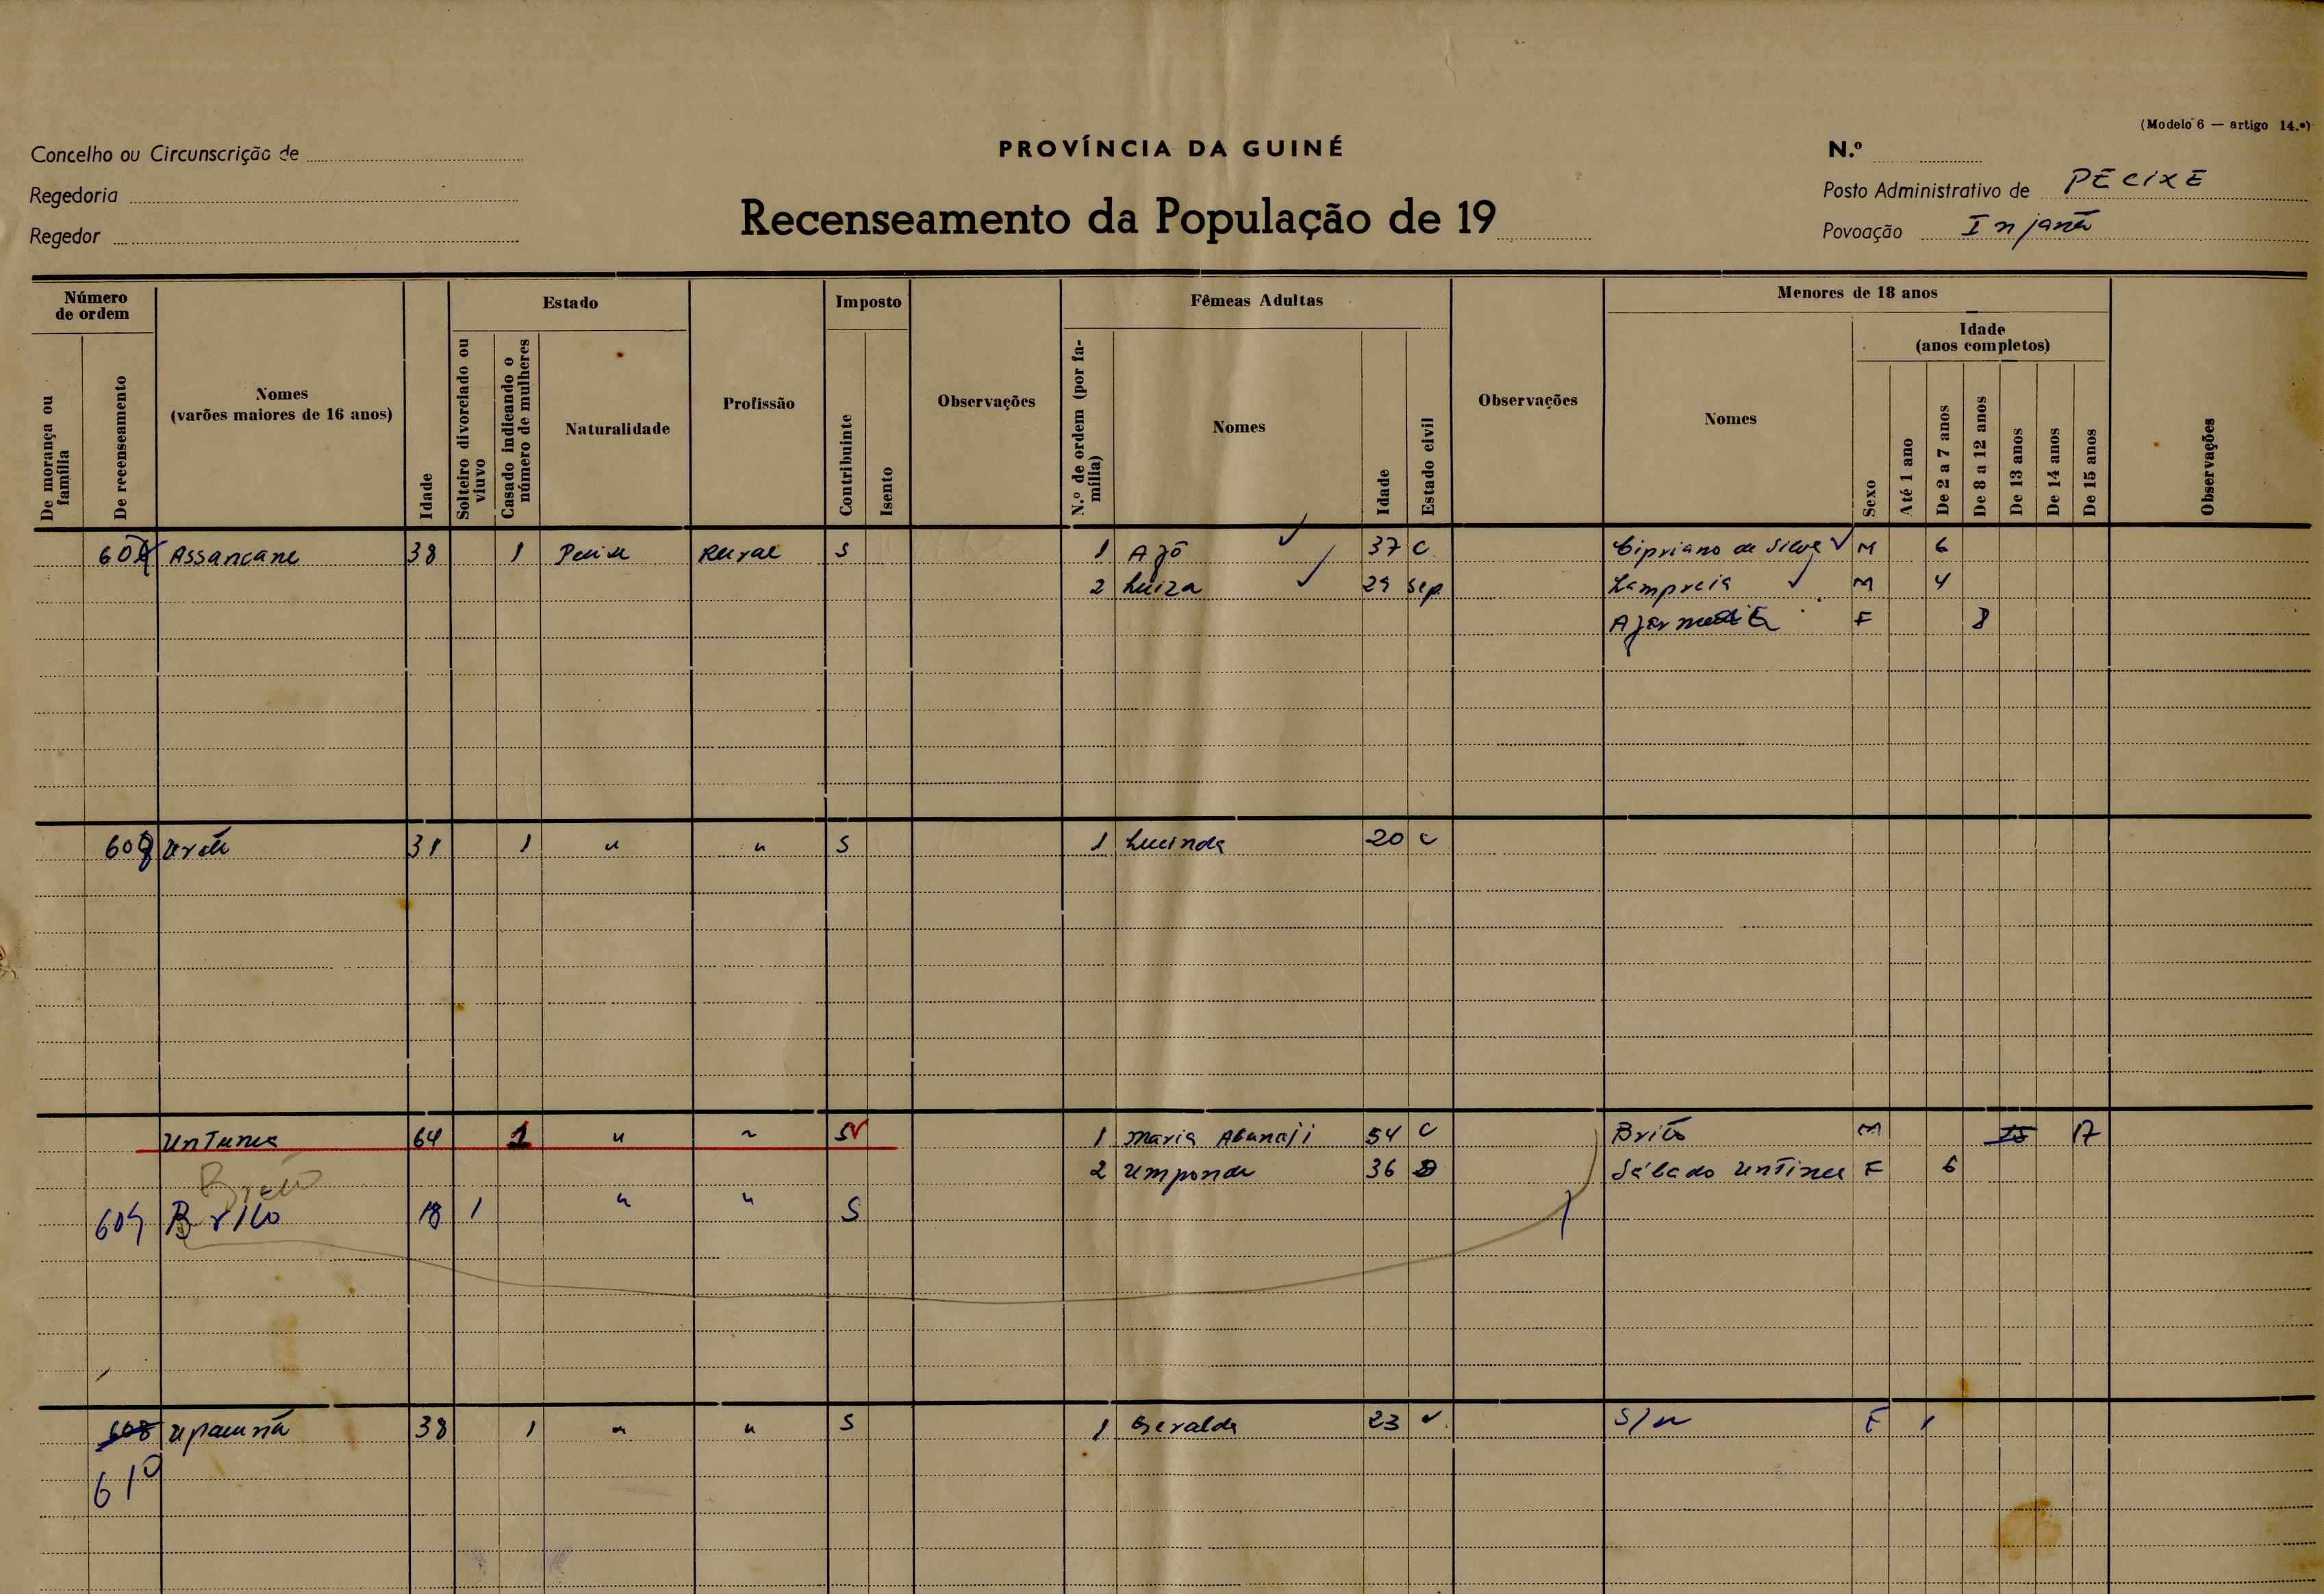 (Modelo 6 — artigo 14.º)
PROVÍNCIA DA GUINÉ
Recenseamento da População de 19
Concelho ou Circunscrição de
Regedoria
Regedor
N.º
Posto Administrativo de PÉCIXE
Povoação Injanã
Número de ordem
De morança ou família
De recenseamento
Nomes
(varões maiores de 16 anos)
Idade
Estado
Solteiro divorciado ou viuvo
Casado indicando o número de mulheres
Naturalidade
Profissão
Imposto
Contribuinte
Isento
Observações
Fêmeas Adultas
N.º de ordem (por família)
Nomes
Idade
Estado civil
Observações
Menores de 18 anos
Nomes
Sexo
Idade
(anos completos)
Até 1 ano
De 2 a 7 anos
De 8 a 12 anos
De 13 anos
De 14 anos
De 15 anos
Observações
Assancane 38 1 Rural S 1 Ajó 37 C Cipriano da Silva M 6
2 Luiza 29 Sep. Lampreia M 4
F 8
608 31 1 " " S 1 Lucinda 20 C
64 1 " S 1 Maria Abanaji 54 C Brito M 15 17
2 Umponda 36 Sábado F 6
Brito
609 Brito 18 1 " " S
608 38 1 " " S 1 Geralda 23 S/n F 1
610